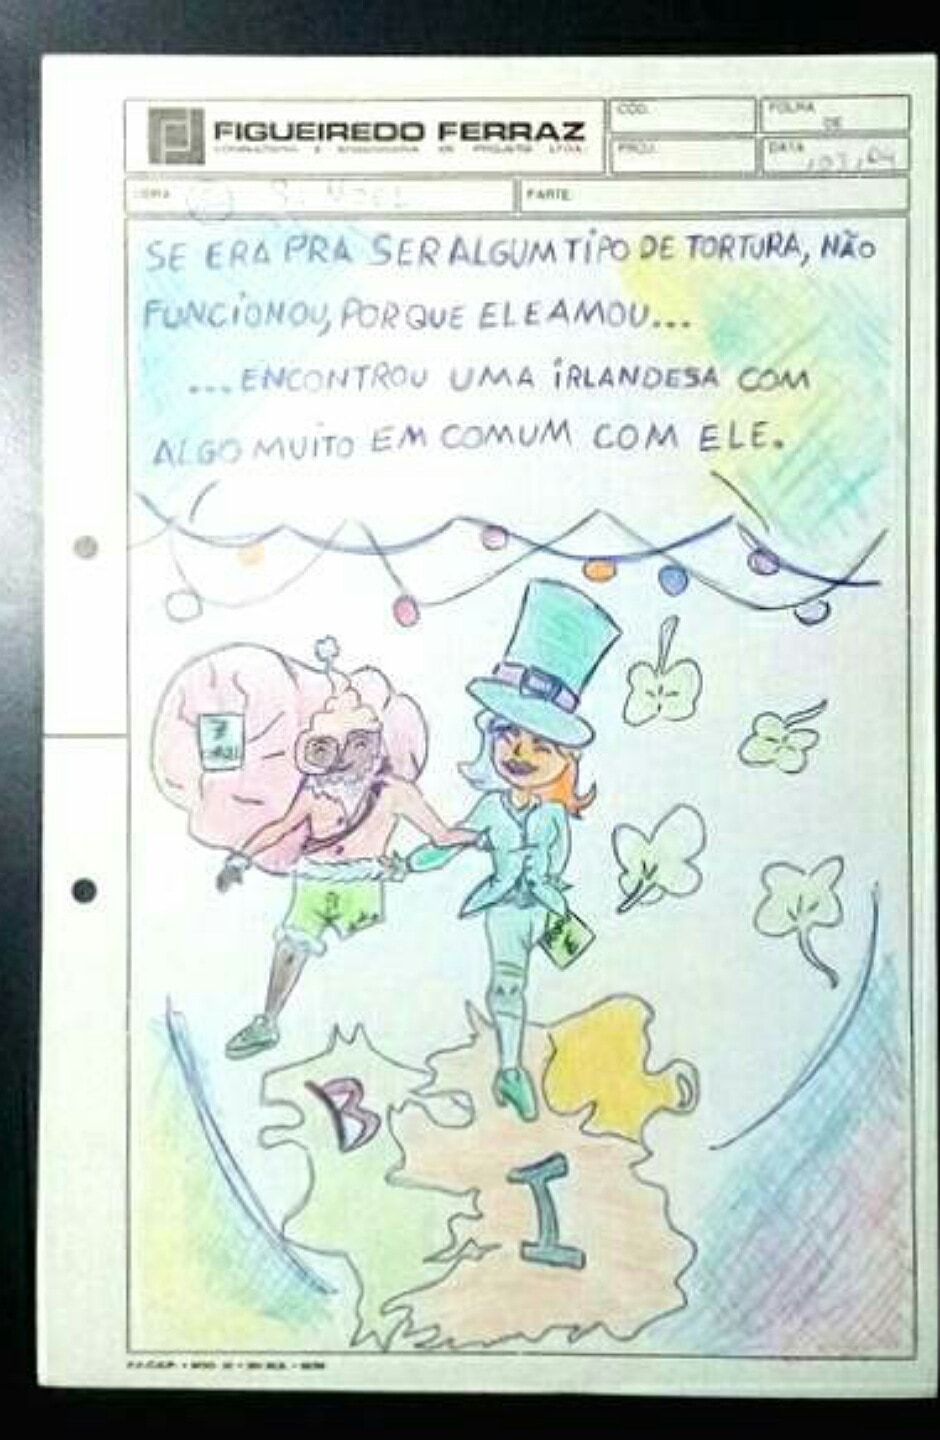 FIGUEIREDO FERRAZ
CONSULTORIA E ENGENHARIA DE PROJETO LTDA.
CÓD.
FOLHA
DE
PROJ.
DATA
OBRA
PARTE
SE ERA PRA SER ALGUM TIPO DE TORTURA, NÃO
FUNCIONOU, PORQUE ELE AMOU...
...ENCONTROU UMA IRLANDESA COM
ALGO MUITO EM COMUM COM ELE.
B
I